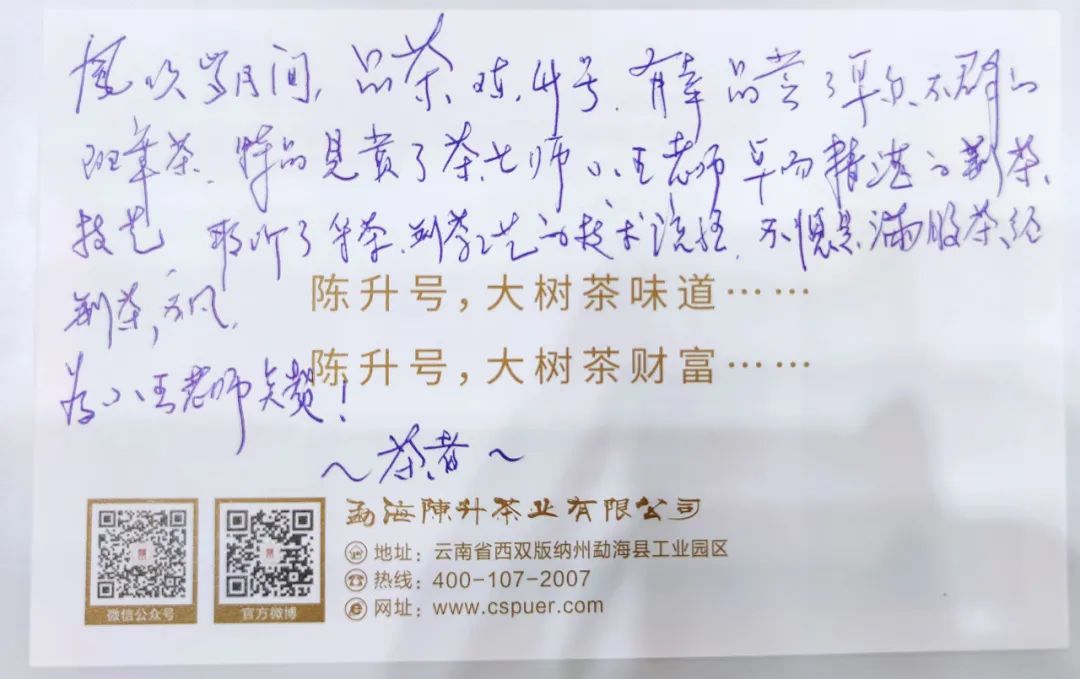 岁月间,品茶陈升号.有幸品尝了卓尔不群的
班章茶.特别见赏了茶七师小王老师 精湛的制茶
技艺 聆听了 茶.制茶工艺的技术 不愧是满腹茶经
制茶,
为小王老师点赞!
~茶者~
陈升号,大树茶味道……
陈升号,大树茶财富……
勐海陳升茶业有限公司
地址:云南省西双版纳州勐海县工业园区
热线:400-107-2007
网址:www.cspuer.com
微信公众号
官方微博